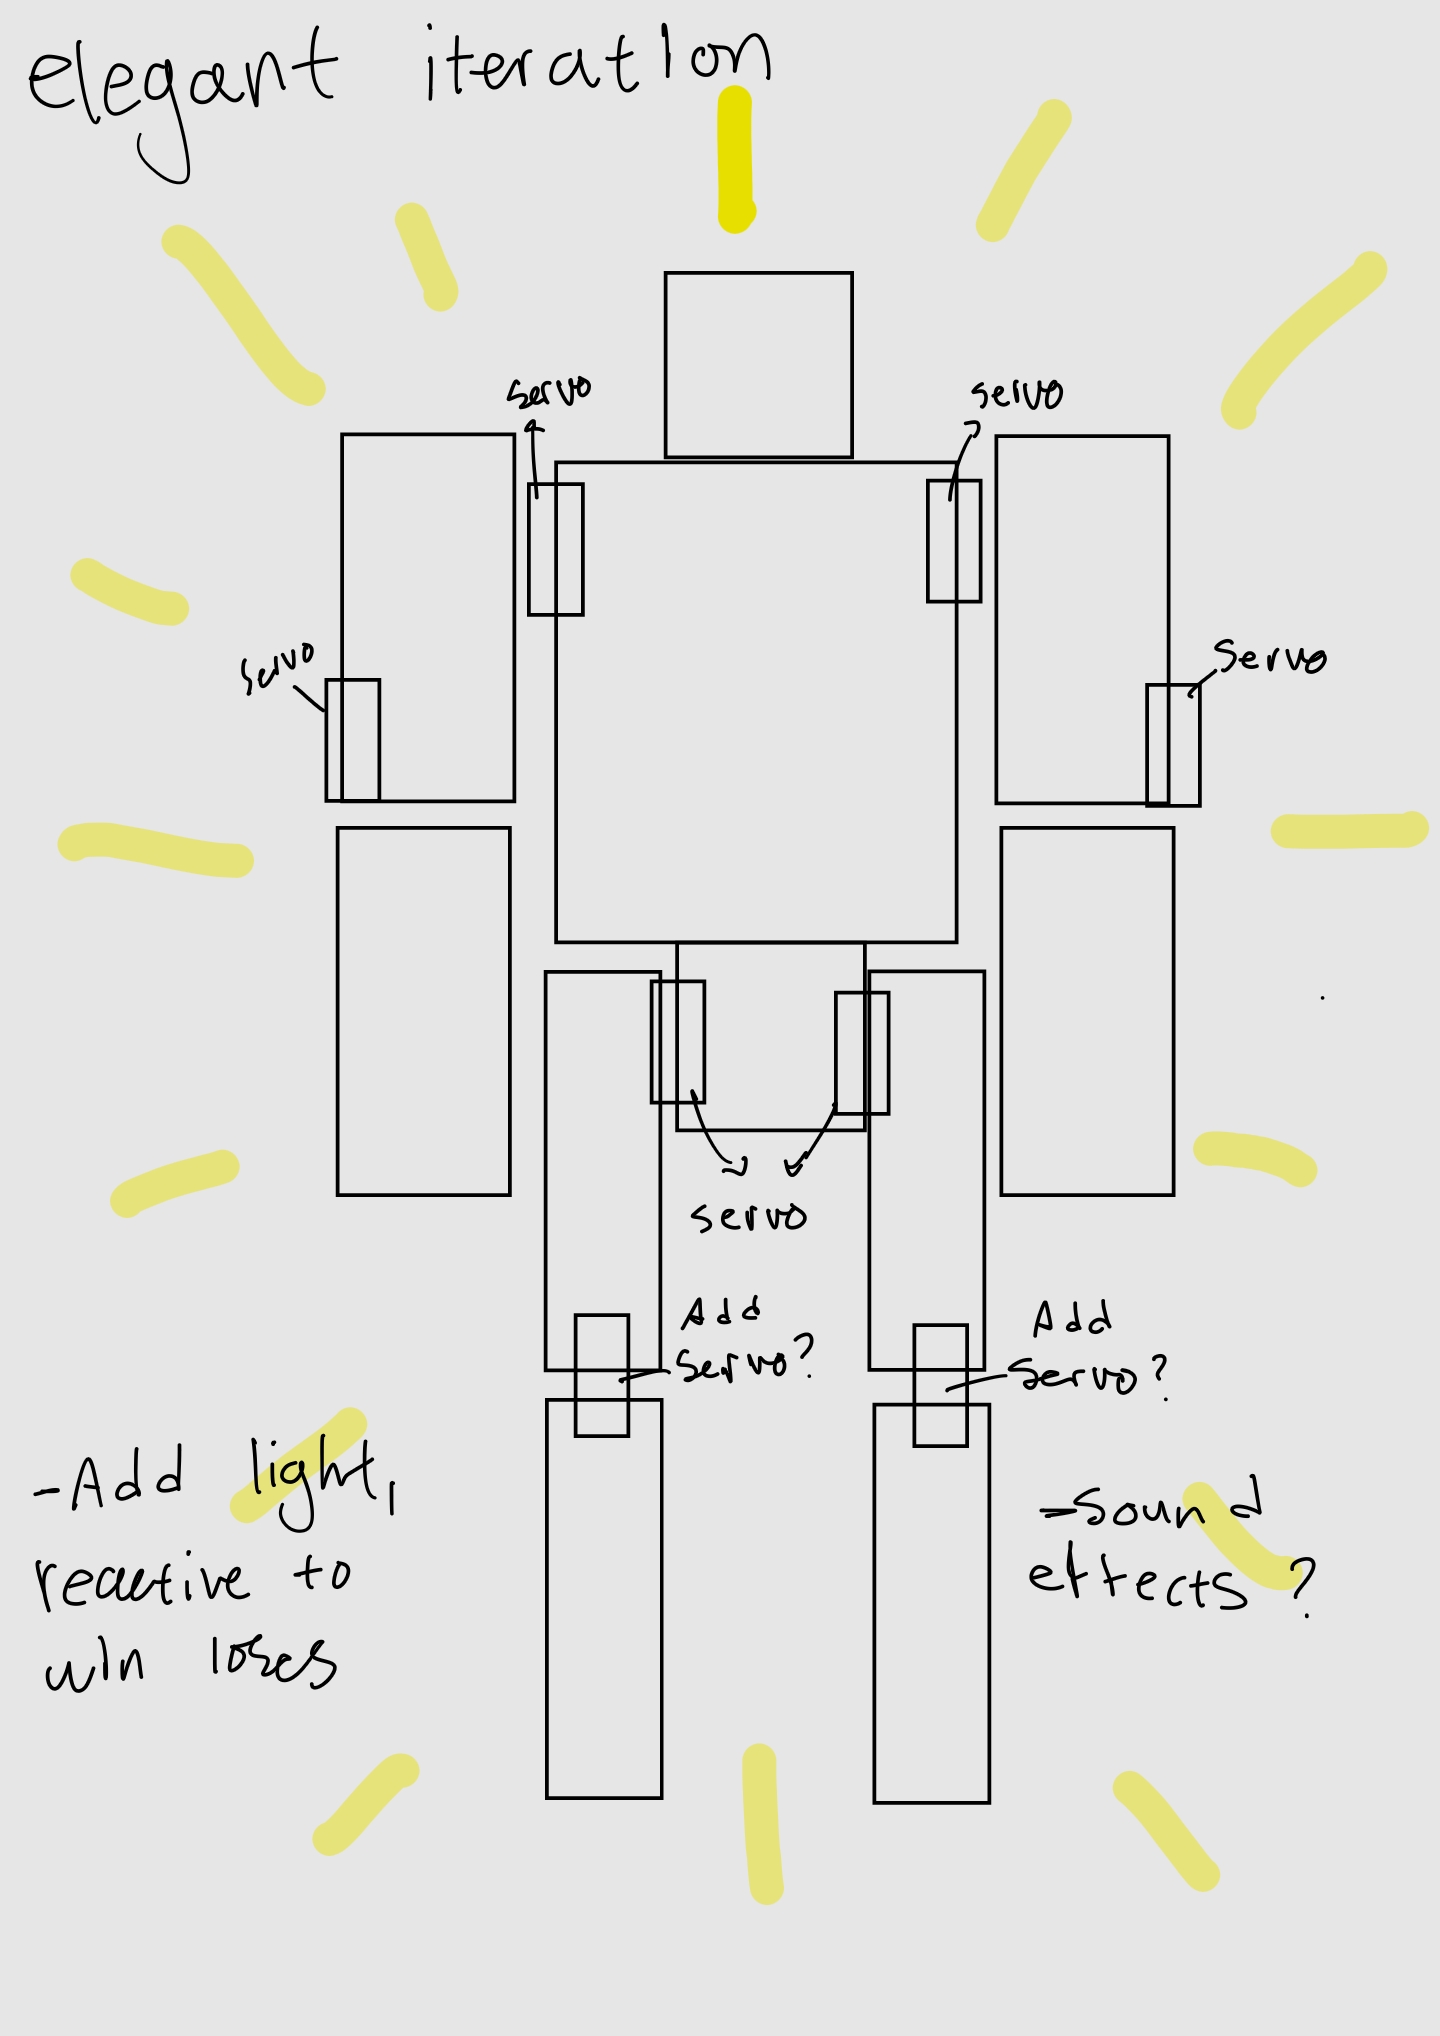 elegant iteration
servo
servo
servo
servo
servo
Add
servo?
Add
servo?
-Add light,
reactive to
win loses
-Sound
effects?